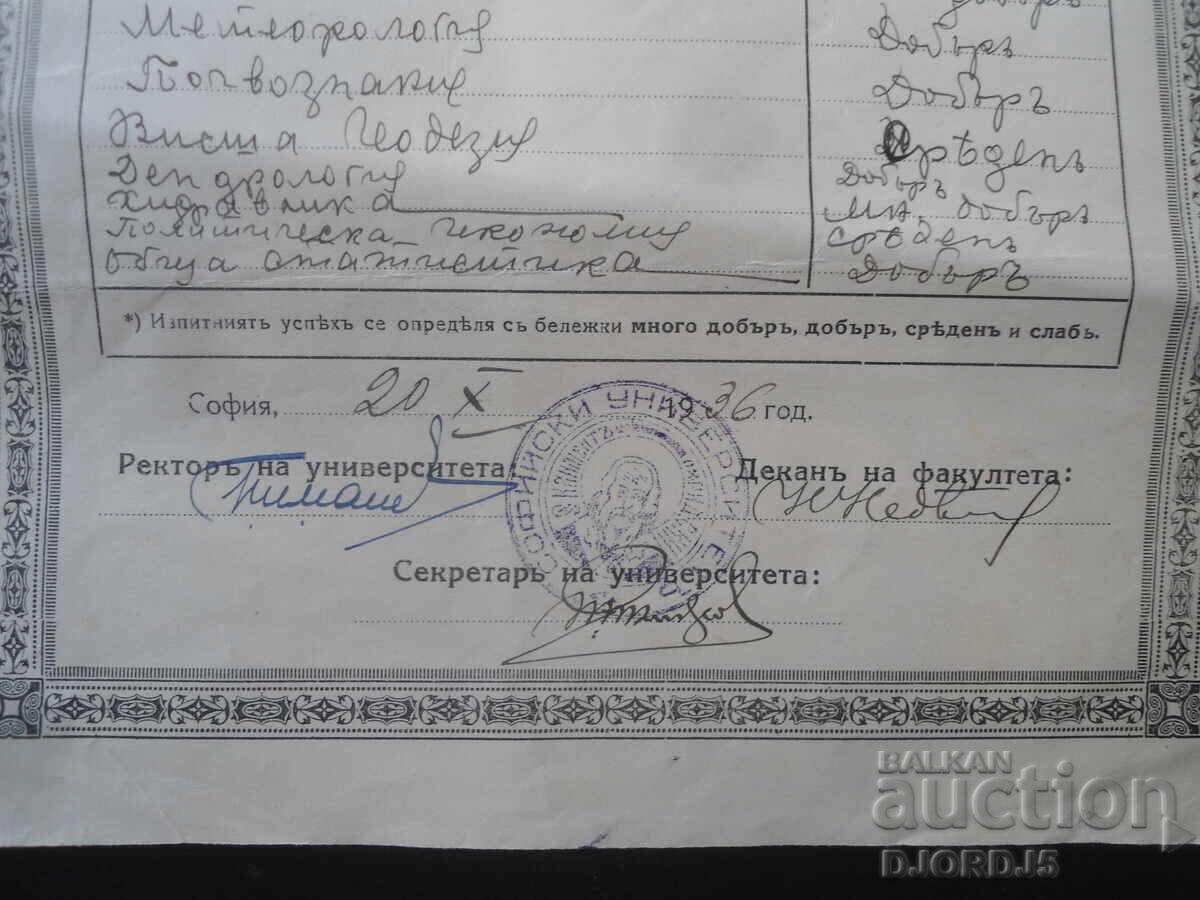 Метеорология Добъръ
Почвознание Добъръ
Висша Геодезия Срѣденъ
Дендрология Добъръ
Хидравлика Мн. добъръ
Политическа икономия срѣденъ
Обща статистика Добъръ
*) Изпитниятъ успѣхъ се опредѣля съ бележки много добъръ, добъръ, срѣденъ и слабъ.
София, 20 X 1936 год.
Ректоръ на университета: Деканъ на факултета:
СОФИЙСКИ УНИВЕРСИТЕТ
Секретарь на университета:
BALKAN
auction
DJORDJ5